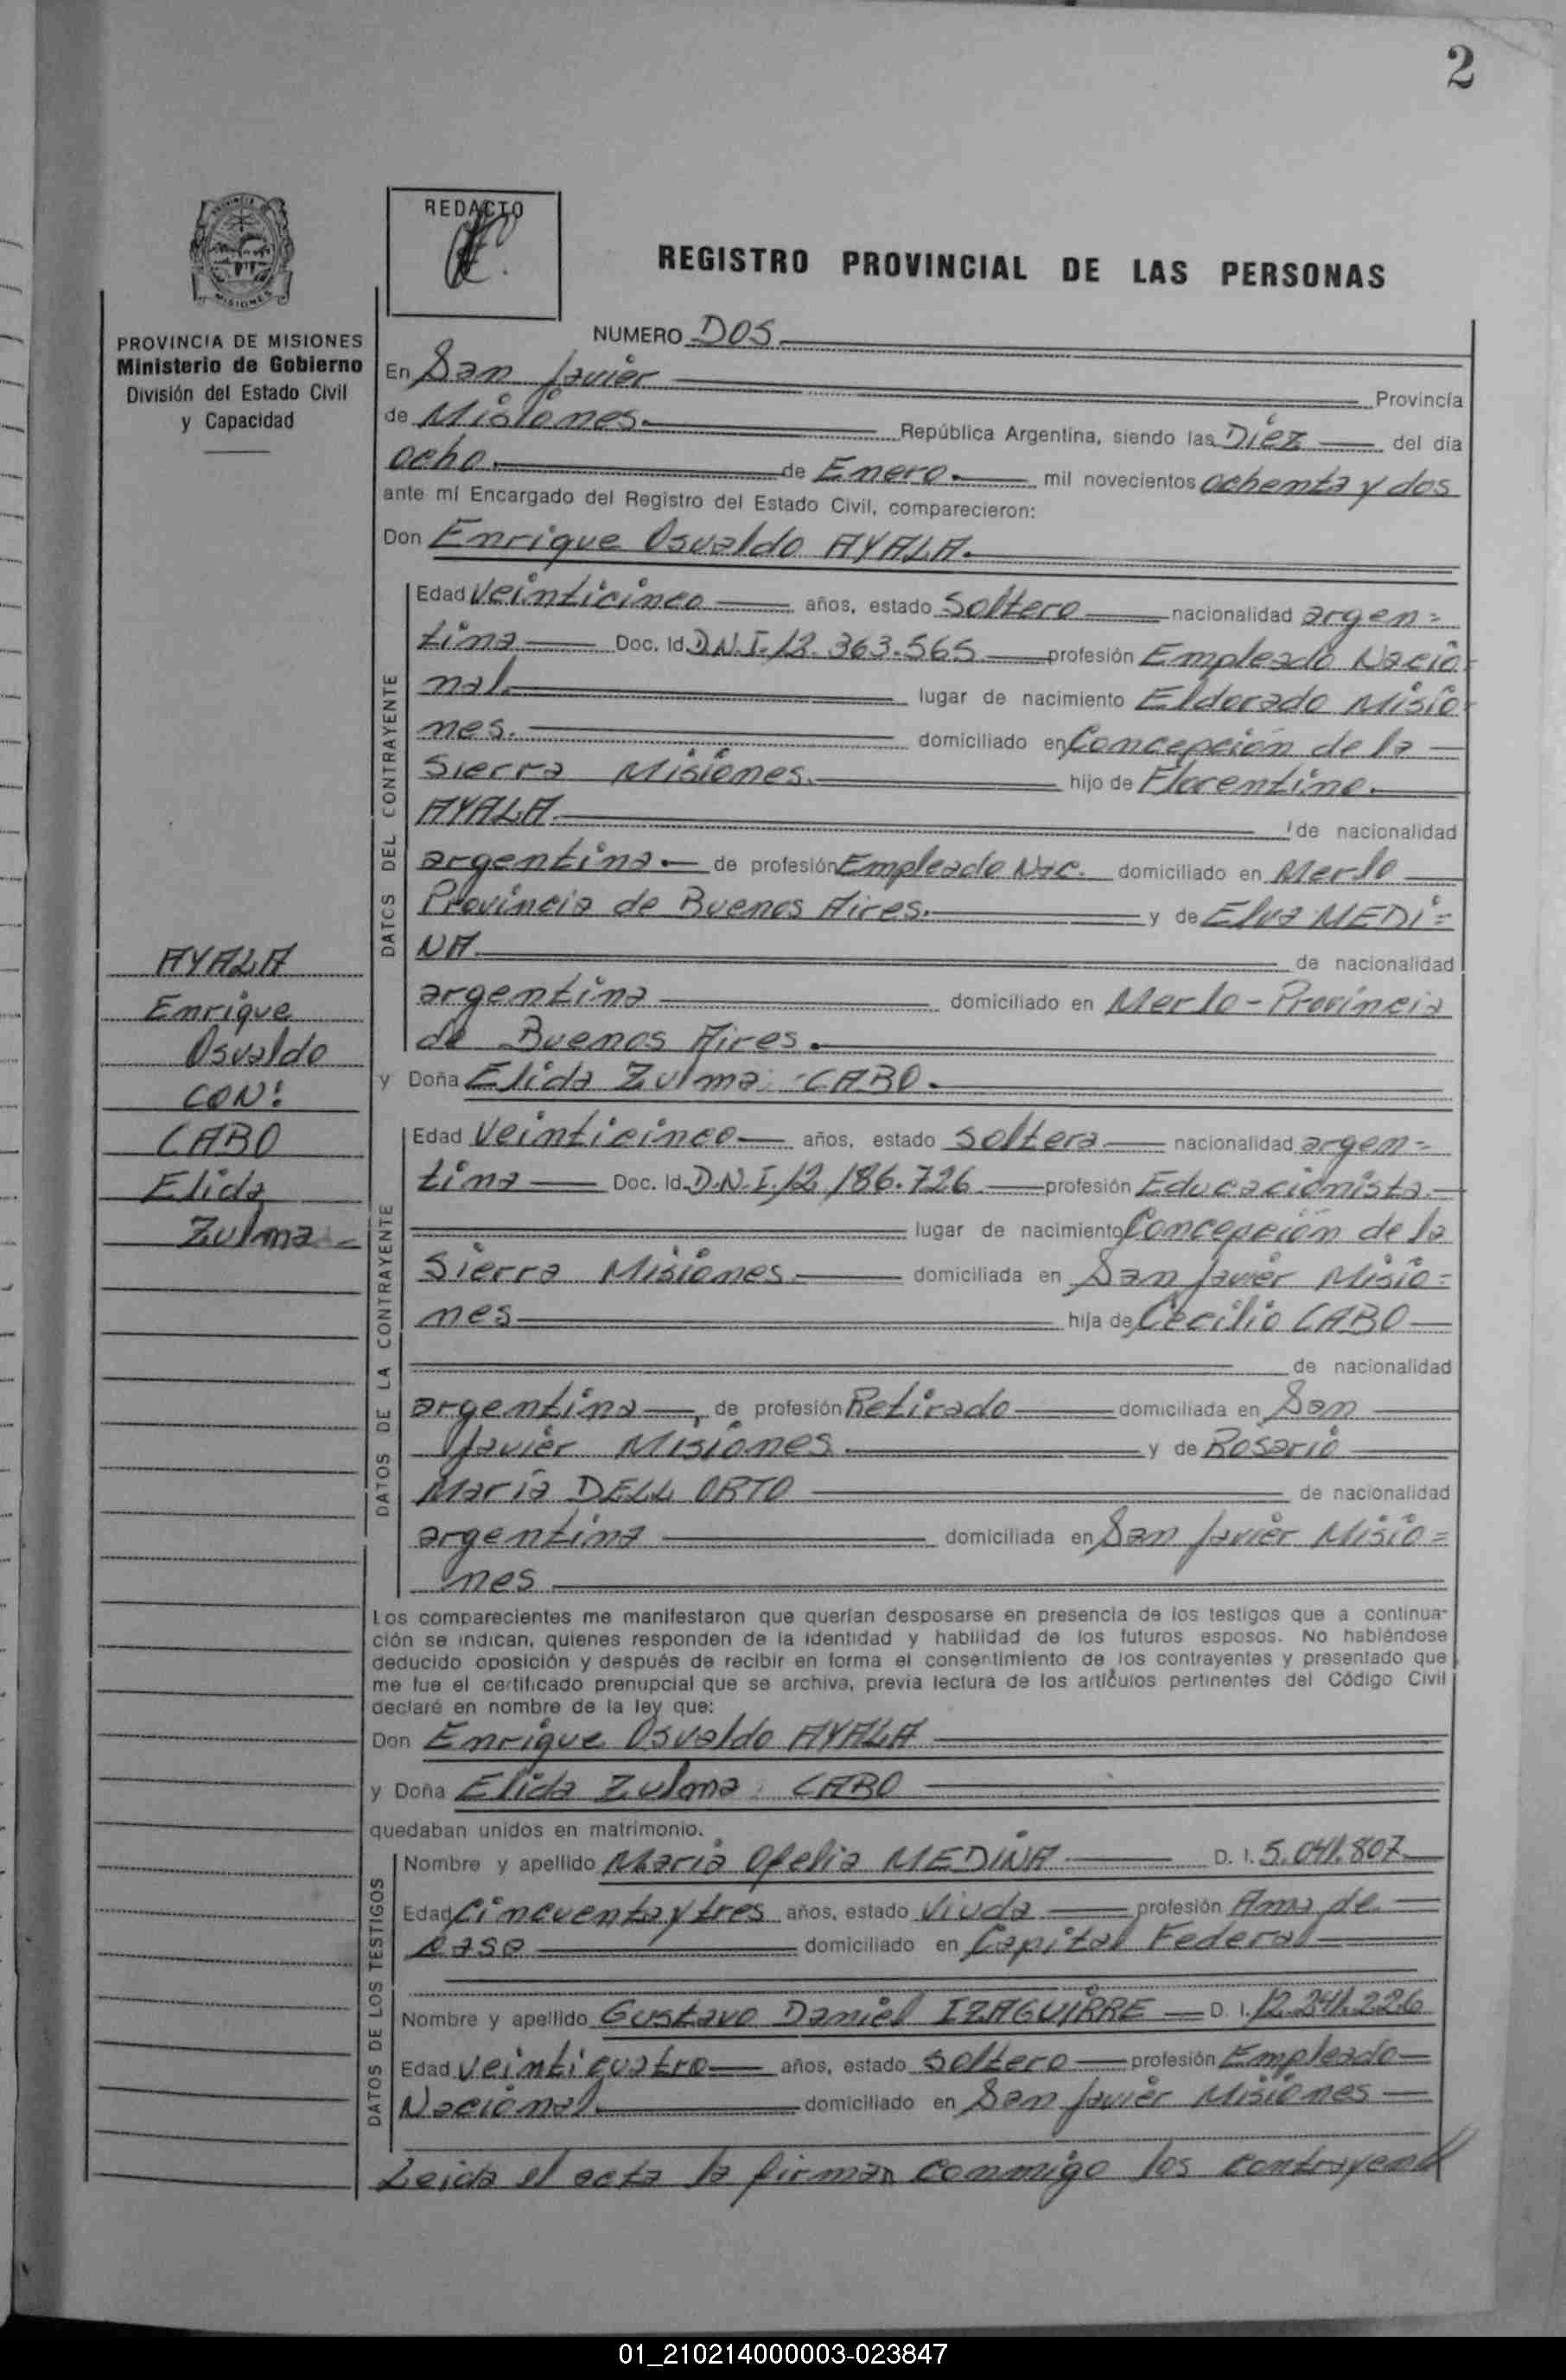 2
REDACTO
REGISTRO PROVINCIAL DE LAS PERSONAS
MISIONES
PROVINCIA DE MISIONES
Ministerio de Gobierno
División del Estado Civil
y Capacidad
NUMERO DOS
En San Javier Provincia
de Misiones. República Argentina, siendo las Diez del día
ocho de Enero. mil novecientos ochenta y dos
ante mí Encargado del Registro del Estado Civil, comparecieron:
Don Enrique Osvaldo AYALA.
DATOS DEL CONTRAYENTE
Edad Veinticinco años, estado Soltero nacionalidad argen=
tina Doc. Id. D.N.I. 12.363.565 profesión Empleado Nacio
nal. lugar de nacimiento Eldorado Misio
nes. domiciliado en Concepción de la
Sierra Misiones. hijo de Florentino.
AYALA. de nacionalidad
argentina. de profesión Empleado Nac. domiciliado en Merlo
Provincia de Buenos Aires. y de Elva MEDI=
NA. de nacionalidad
argentina domiciliado en Merlo - Provincia
de Buenos Aires.
y Doña Elida Zulma CABO.
AYALA
Enrique
Osvaldo
CON:
CABO
Elida
Zulma
DATOS DE LA CONTRAYENTE
Edad Veinticinco años, estado Soltera nacionalidad argen=
tina Doc. Id. D.N.I. 12.186.726 profesión Educacionista.
lugar de nacimiento Concepción de la
Sierra Misiones. domiciliada en San Javier Misio=
nes hija de Cecilio CABO
de nacionalidad
argentina, de profesión Retirado domiciliada en San
Javier Misiones. y de Rosario
María DELL ORTO de nacionalidad
argentina domiciliada en San Javier Misio=
nes
Los comparecientes me manifestaron que querían desposarse en presencia de los testigos que a continua-
ción se indican, quienes responden de la identidad y habilidad de los futuros esposos. No habiéndose
deducido oposición y después de recibir en forma el consentimiento de los contrayentes y presentado que
me fue el certificado prenupcial que se archiva, previa lectura de los artículos pertinentes del Código Civil
declaré en nombre de la ley que:
Don Enrique Osvaldo AYALA
y Doña Elida Zulma CABO
quedaban unidos en matrimonio.
DATOS DE LOS TESTIGOS
Nombre y apellido María Ofelia MEDINA D. I. 5.041.807
Edad Cincuenta y tres años, estado Viuda profesión Ama de
casa domiciliado en Capital Federal
Nombre y apellido Gustavo Daniel IZAGUIRRE D. I. 12.241.226
Edad Veinticuatro años, estado Soltero profesión Empleado
Nacional. domiciliado en San Javier Misiones
Leida el acta la firman conmigo los contrayent
01_210214000003-023847